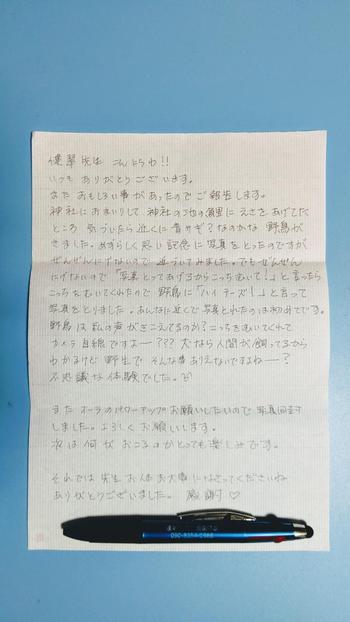 先生 こんにちわ!!
いつも ありがとう ございます。
また おもしろい事が あったので ご報告します。
神社に おまいりして 神社の池の 鯉に えさを あげてたく
ところ 気づいたら 近くに 青サギ? なのかな 野鳥が
きました。めずらしく思い 記念に 写真を とったのですが
ぜんぜん にげないので 近づいてみました。でも ぜんぜん
にげないので 「写真 とって あげるから こっち むいて!」と 言ったら
こっちを むいてくれたので 野鳥に 「ハイ チーズ!」と 言って
写真をとりました。あんなに 近くで 写真 とれたのは 初めてです。
野鳥は 私の声が きこえてるのか? こっちを むいてくれて
カメラ 目線ですよー??? 犬なら 人間が 飼ってるから
わかるけど 野生で そんな事 ありえないですよねー?
不思議な 体験でした。
また オーラの パワーアップ お願いしたいので 写真 同封
しました。よろしく お願いします。
次は 何が おこるのか とっても 楽しみです。
それでは 先生 お体 お大事に なさって くださいね
ありがとう ございました。 感謝 ♡